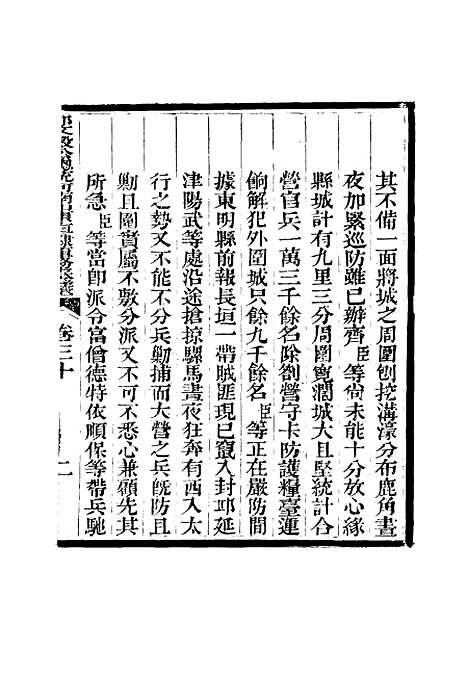 其不備一面將城之周圍刨挖溝濠分布鹿角晝
夜加緊巡防雖已辦齊臣等尚未能十分放心緣
縣城計有九里三分周圍寬濶城大且堅統計合
營官兵一萬三千餘名除劄營守卡防護糧臺運
餉解犯外圍城只餘九千餘名臣等正在嚴防間
據東明縣前報長垣一帶賊匪現已竄入封邱延
津陽武等處沿途搶掠騾馬晝夜狂奔有西入太
行之勢又不能不分兵勦捕而大營之兵旣防且
勦且圍實屬不敷分派又不可不悉心兼顧先其
所急臣等當卽派令富僧德特依順保等帶兵馳
卷三十
二